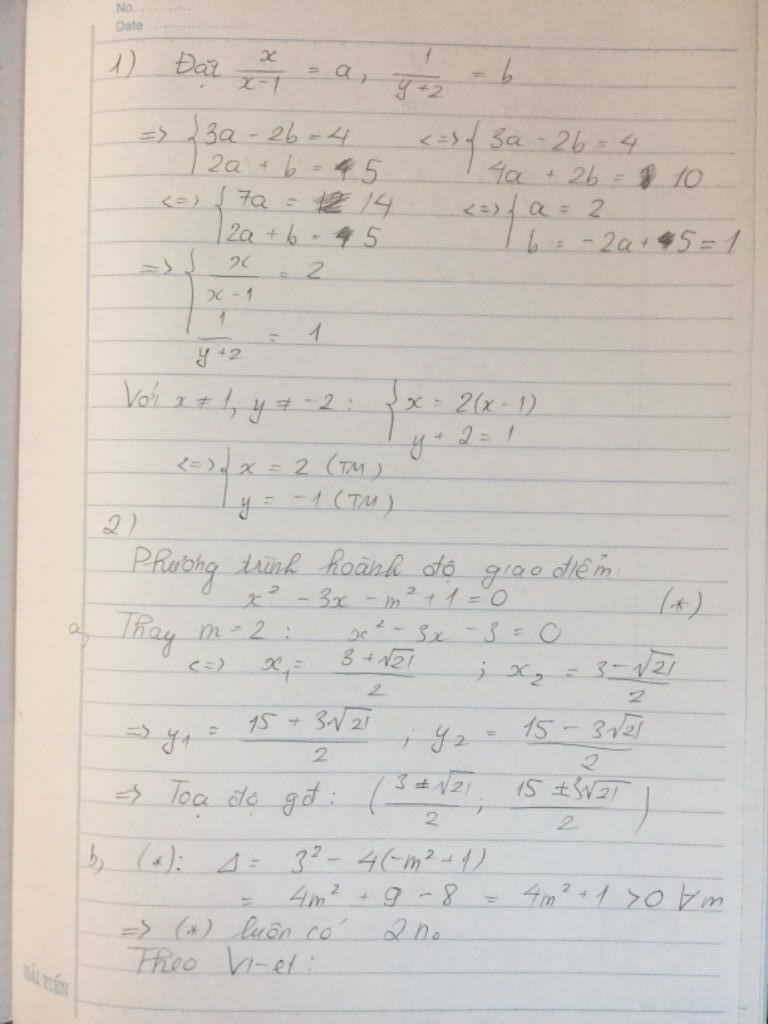 No. ............
Date ............
1) Đặt x/(x-1) = a, 1/(y+2) = b
=> { 3a - 2b = 4 <=> { 3a - 2b = 4
2a + b = 5 4a + 2b = 10
<=> { 7a = 14 <=> { a = 2
2a + b = 5 b = -2a + 5 = 1
=> { x/(x-1) = 2
1/(y+2) = 1
Với x ≠ 1, y ≠ -2 : { x = 2(x-1)
y + 2 = 1
<=> { x = 2 (TM)
y = -1 (TM)
2)
Phương trình hoành độ giao điểm:
x² - 3x - m² + 1 = 0 (*)
a, Thay m = 2 : x² - 3x - 3 = 0
<=> x₁ = (3 + √21)/2 ; x₂ = (3 - √21)/2
=> y₁ = (15 + 3√21)/2 ; y₂ = (15 - 3√21)/2
=> Toạ độ gđ: ( (3 ± √21)/2 ; (15 ± 3√21)/2 )
b, (*): Δ = 3² - 4(-m² + 1)
= 4m² + 9 - 8 = 4m² + 1 > 0 ∀m
=> (*) luôn có 2 n₀
Theo Vi-et :
HẢI TIẾN